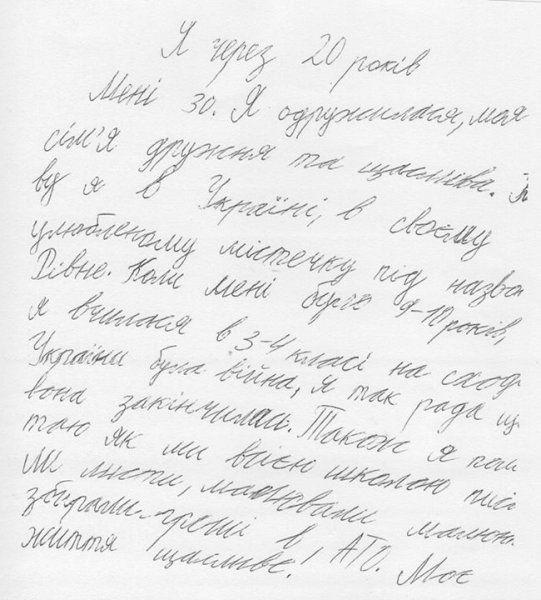 Я через 20 років
Мені 30. Я одружилася, моя
сім'я дружня та щаслива.
ву я в Україні, в своєму
улюбленому містечку під назво
Рівне. Коли мені було 9-10 років,
я вчилася в 3-4 класі на сході
України була війна, я так рада що
вона закінчилась. Також я пам
таю як ми всією школою писа
ли листи, малювали малюн
збирали гроші в АТО. Моє
життя щасливе!